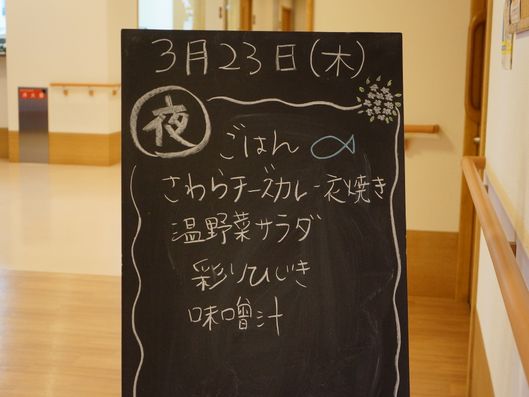 3月23日(木)
夜
ごはん
さわらチーズカレー衣焼き
温野菜サラダ
彩りひじき
味噌汁